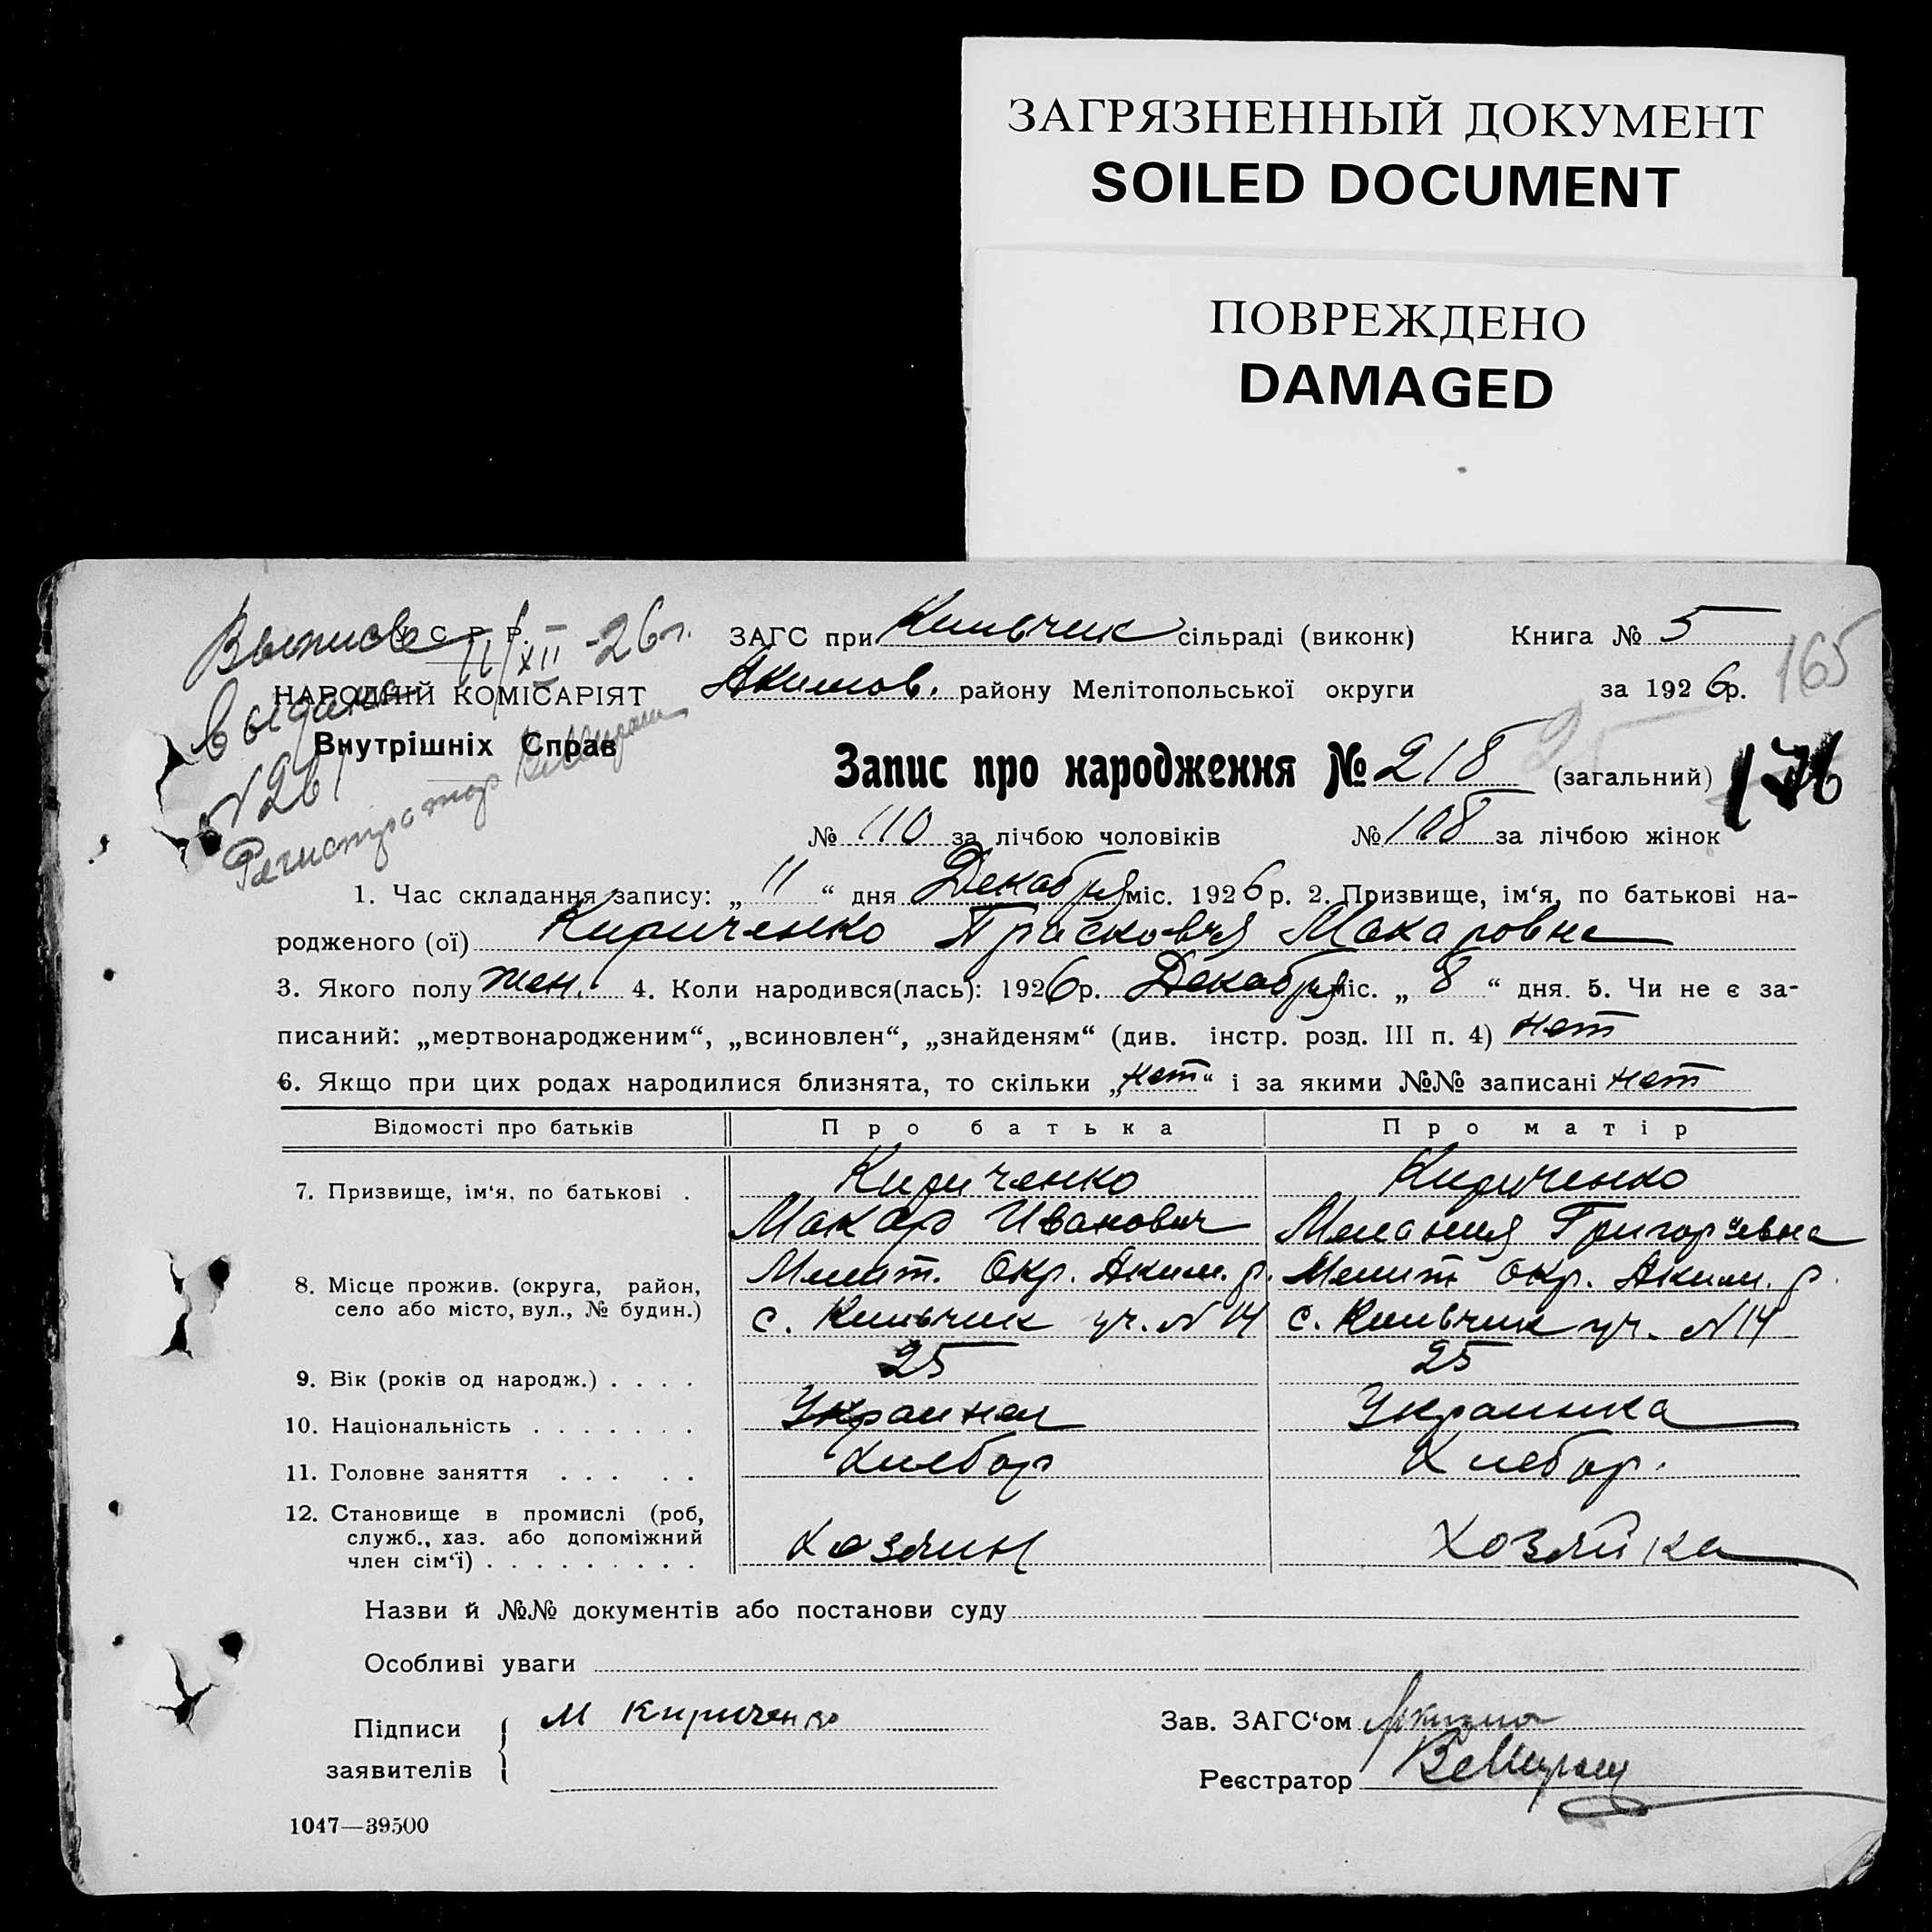 ЗАГРЯЗНЕННЫЙ ДОКУМЕНТ
SOILED DOCUMENT
ПОВРЕЖДЕНО
DAMAGED
У С Р Р.
НАРОДНІЙ КОМІСАРІЯТ
Внутрішніх Справ
11/XII -26г.
выдана
N 261
Регистратор
ЗАГС при Кильчик сільраді (виконк) Книга № 5
Акимов. району Мелітопольської округи за 1926р.
165
Запис про народження № 218 (загальний)
25
176
№ 110 за лічбою чоловіків № 108 за лічбою жінок
1. Час складання запису: „ 11 “ дня Декабря міс. 1926 р. 2. Призвище, ім‘я, по батькові на-
родженого (ої) Кириченко Прасковья Макаровна
3. Якого полу жен. 4. Коли народився(лась): 1926р. Декабря міс. „ 8 “ дня. 5. Чи не є за-
писаний: „мертвонародженим“, „всиновлен“, „знайденям“ (див. інстр. розд. III п. 4) нет
6. Якщо при цих родах народилися близнята, то скільки „нет“ і за якими №№ записані нет
Відомості про батьків Про батька Про матір
7. Призвище, ім‘я, по батькові . Кириченко Кириченко
Макар Иванович Мелания Григорьевна
8. Місце прожив. (округа, район, село або місто, вул., № будин.) Мелит. Окр. Аким. р. Мелит Окр. Аким. р.
с. Кильчик уч. N 14 с. Кильчик уч. N 14
9. Вік (років од народж.) . . . . 25 25
10. Національність . . . . . . . Украинец Украинка
11. Головне заняття . . . . . Хлебор Хлебор.
12. Становище в промислі (роб, служб., хаз. або допоміжний член сім‘ї) . . . . . . . . . Хозяин Хозяйка
Назви й №№ документів або постанови суду
Особливі уваги
Підписи заявителів М Кириченко
Зав. ЗАГС‘ом
Реєстратор
1047—39500